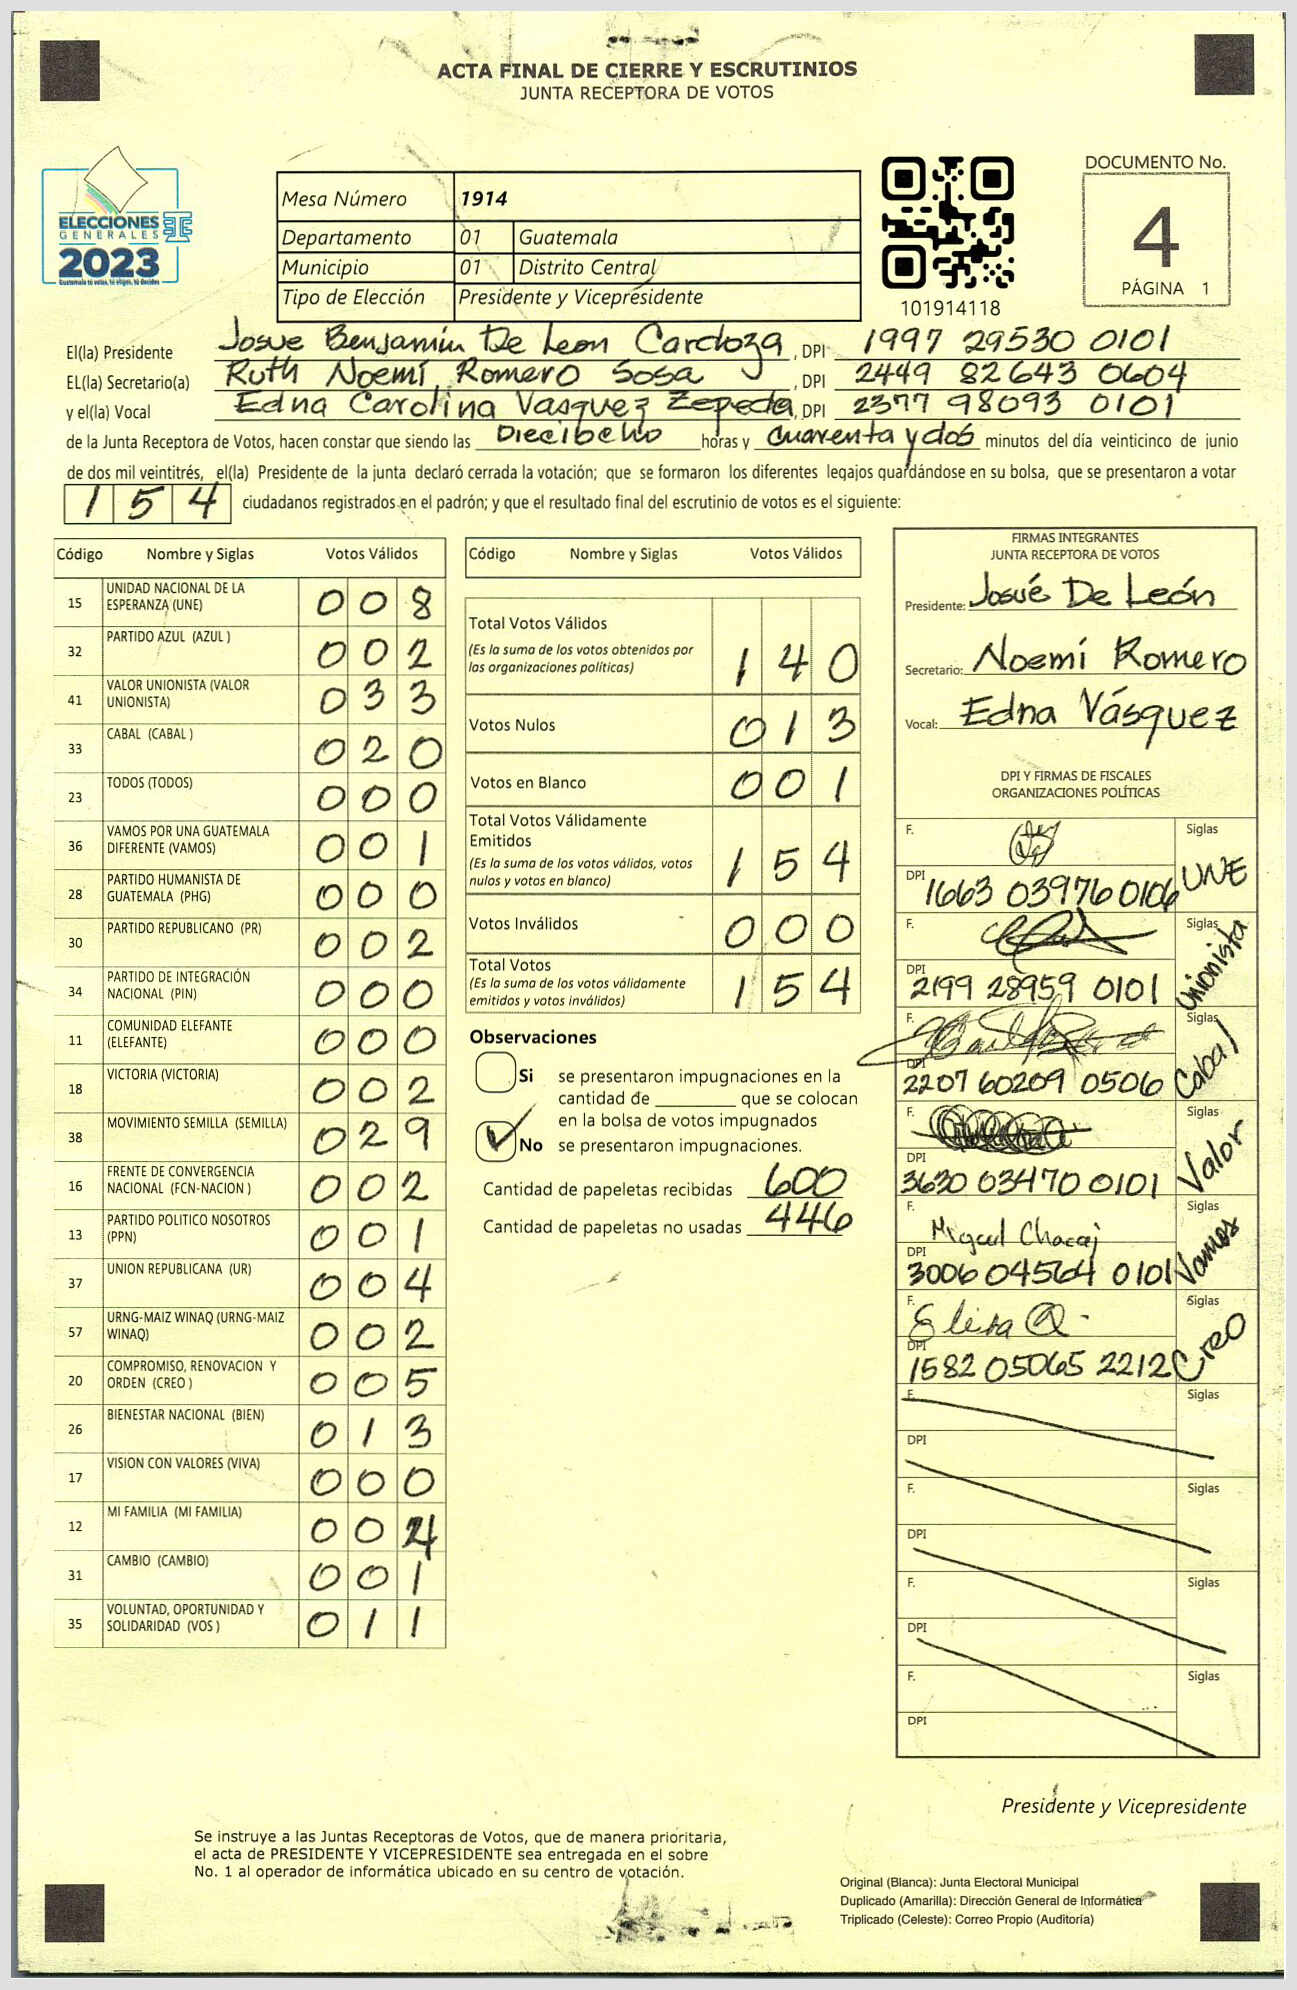 ACTA FINAL DE CIERRE Y ESCRUTINIOS
JUNTA RECEPTORA DE VOTOS
ELECCIONES
GENERALES
2023
Guatemala tú votas, tú eliges, tú decides
Mesa Número 1914
Departamento 01 Guatemala
Municipio 01 Distrito Central
Tipo de Elección Presidente y Vicepresidente
101914118
DOCUMENTO No.
4
PÁGINA 1
El(la) Presidente Josue Benjamín De Leon Cardoza, DPI 1997 29530 0101
EL(la) Secretario(a) Ruth Noemí Romero Sosa, DPI 2449 82643 0604
y el(la) Vocal Edna Carolina Vasquez Zepeda, DPI 2377 98093 0101
de la Junta Receptora de Votos, hacen constar que siendo las Diecibcho horas y cuarenta y dos minutos del día veinticinco de junio
de dos mil veintitrés, el(la) Presidente de la junta declaró cerrada la votación; que se formaron los diferentes legajos guardándose en su bolsa, que se presentaron a votar
154 ciudadanos registrados en el padrón; y que el resultado final del escrutinio de votos es el siguiente:
Código Nombre y Siglas Votos Válidos
15 UNIDAD NACIONAL DE LA
ESPERANZA (UNE) 008
32 PARTIDO AZUL (AZUL ) 002
41 VALOR UNIONISTA (VALOR
UNIONISTA) 033
33 CABAL (CABAL ) 020
23 TODOS (TODOS) 000
36 VAMOS POR UNA GUATEMALA
DIFERENTE (VAMOS) 001
28 PARTIDO HUMANISTA DE
GUATEMALA (PHG) 000
30 PARTIDO REPUBLICANO (PR) 002
34 PARTIDO DE INTEGRACIÓN
NACIONAL (PIN) 000
11 COMUNIDAD ELEFANTE
(ELEFANTE) 000
18 VICTORIA (VICTORIA) 002
38 MOVIMIENTO SEMILLA (SEMILLA) 029
16 FRENTE DE CONVERGENCIA
NACIONAL (FCN-NACION ) 002
13 PARTIDO POLITICO NOSOTROS
(PPN) 001
37 UNION REPUBLICANA (UR) 004
57 URNG-MAIZ WINAQ (URNG-MAIZ
WINAQ) 002
20 COMPROMISO, RENOVACION Y
ORDEN (CREO ) 005
26 BIENESTAR NACIONAL (BIEN) 013
17 VISION CON VALORES (VIVA) 000
12 MI FAMILIA (MI FAMILIA) 004
31 CAMBIO (CAMBIO) 001
35 VOLUNTAD, OPORTUNIDAD Y
SOLIDARIDAD (VOS ) 011
Código Nombre y Siglas Votos Válidos
Total Votos Válidos
(Es la suma de los votos obtenidos por
las organizaciones políticas) 140
Votos Nulos 013
Votos en Blanco 001
Total Votos Válidamente
Emitidos
(Es la suma de los votos válidos, votos
nulos y votos en blanco) 154
Votos Inválidos 000
Total Votos
(Es la suma de los votos válidamente
emitidos y votos inválidos) 154
Observaciones
Si se presentaron impugnaciones en la
cantidad de ________ que se colocan
en la bolsa de votos impugnados
No se presentaron impugnaciones.
Cantidad de papeletas recibidas 600
Cantidad de papeletas no usadas 446
FIRMAS INTEGRANTES
JUNTA RECEPTORA DE VOTOS
Presidente: Josué De León
Secretario: Noemí Romero
Vocal: Edna Vásquez
DPI Y FIRMAS DE FISCALES
ORGANIZACIONES POLÍTICAS
F. Siglas
DPI 1663 03976 0106 UNE
F. Siglas
DPI 2199 28959 0101 Unionista
F. Siglas
DPI 2207 60209 0506 Cabal
F. Siglas
DPI 3630 03470 0101 Valor
F. Miguel Chacaj Siglas
DPI 3006 04564 0101 Vamos
F. Siglas
DPI 1582 05065 2212 Creo
F. Siglas
DPI
F. Siglas
DPI
F. Siglas
DPI
F. Siglas
DPI
Presidente y Vicepresidente
Se instruye a las Juntas Receptoras de Votos, que de manera prioritaria,
el acta de PRESIDENTE Y VICEPRESIDENTE sea entregada en el sobre
No. 1 al operador de informática ubicado en su centro de votación.
Original (Blanca): Junta Electoral Municipal
Duplicado (Amarilla): Dirección General de Informática
Triplicado (Celeste): Correo Propio (Auditoría)